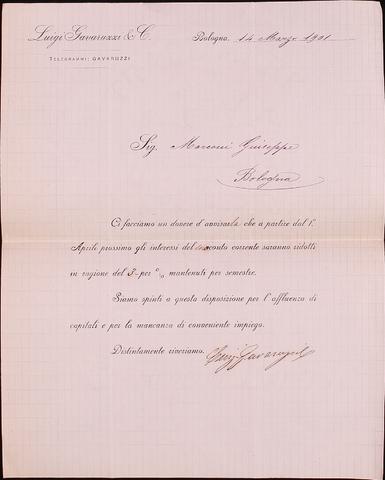 Luigi Gavaruzzi & C.
Bologna, 14 Marzo 1901
TELEGRAMMI: GAVARUZZI
Sig. Marconi Giuseppe
Bologna
Ci facciamo un dovere d'avvisarla che a partire dal 1º
Aprile prossimo gli interessi del conto corrente saranno ridotti
in ragione del 3 per % mantenuti per semestre.
Siamo spinti a questa disposizione per l'affluenza di
capitali e per la mancanza di conveniente impiego.
Distintamente riveriamo.
Luigi Gavaruzzi